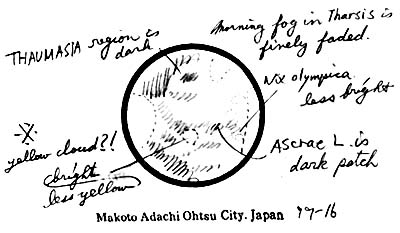 THAUMASIA region is
dark
Morning fog in Tharsis is
finely faded.
Nix olympica
less bright
Ascrae L. is
dark patch
yellow cloud?!
bright
less yellow
Makoto Adachi Ohtsu City. Japan